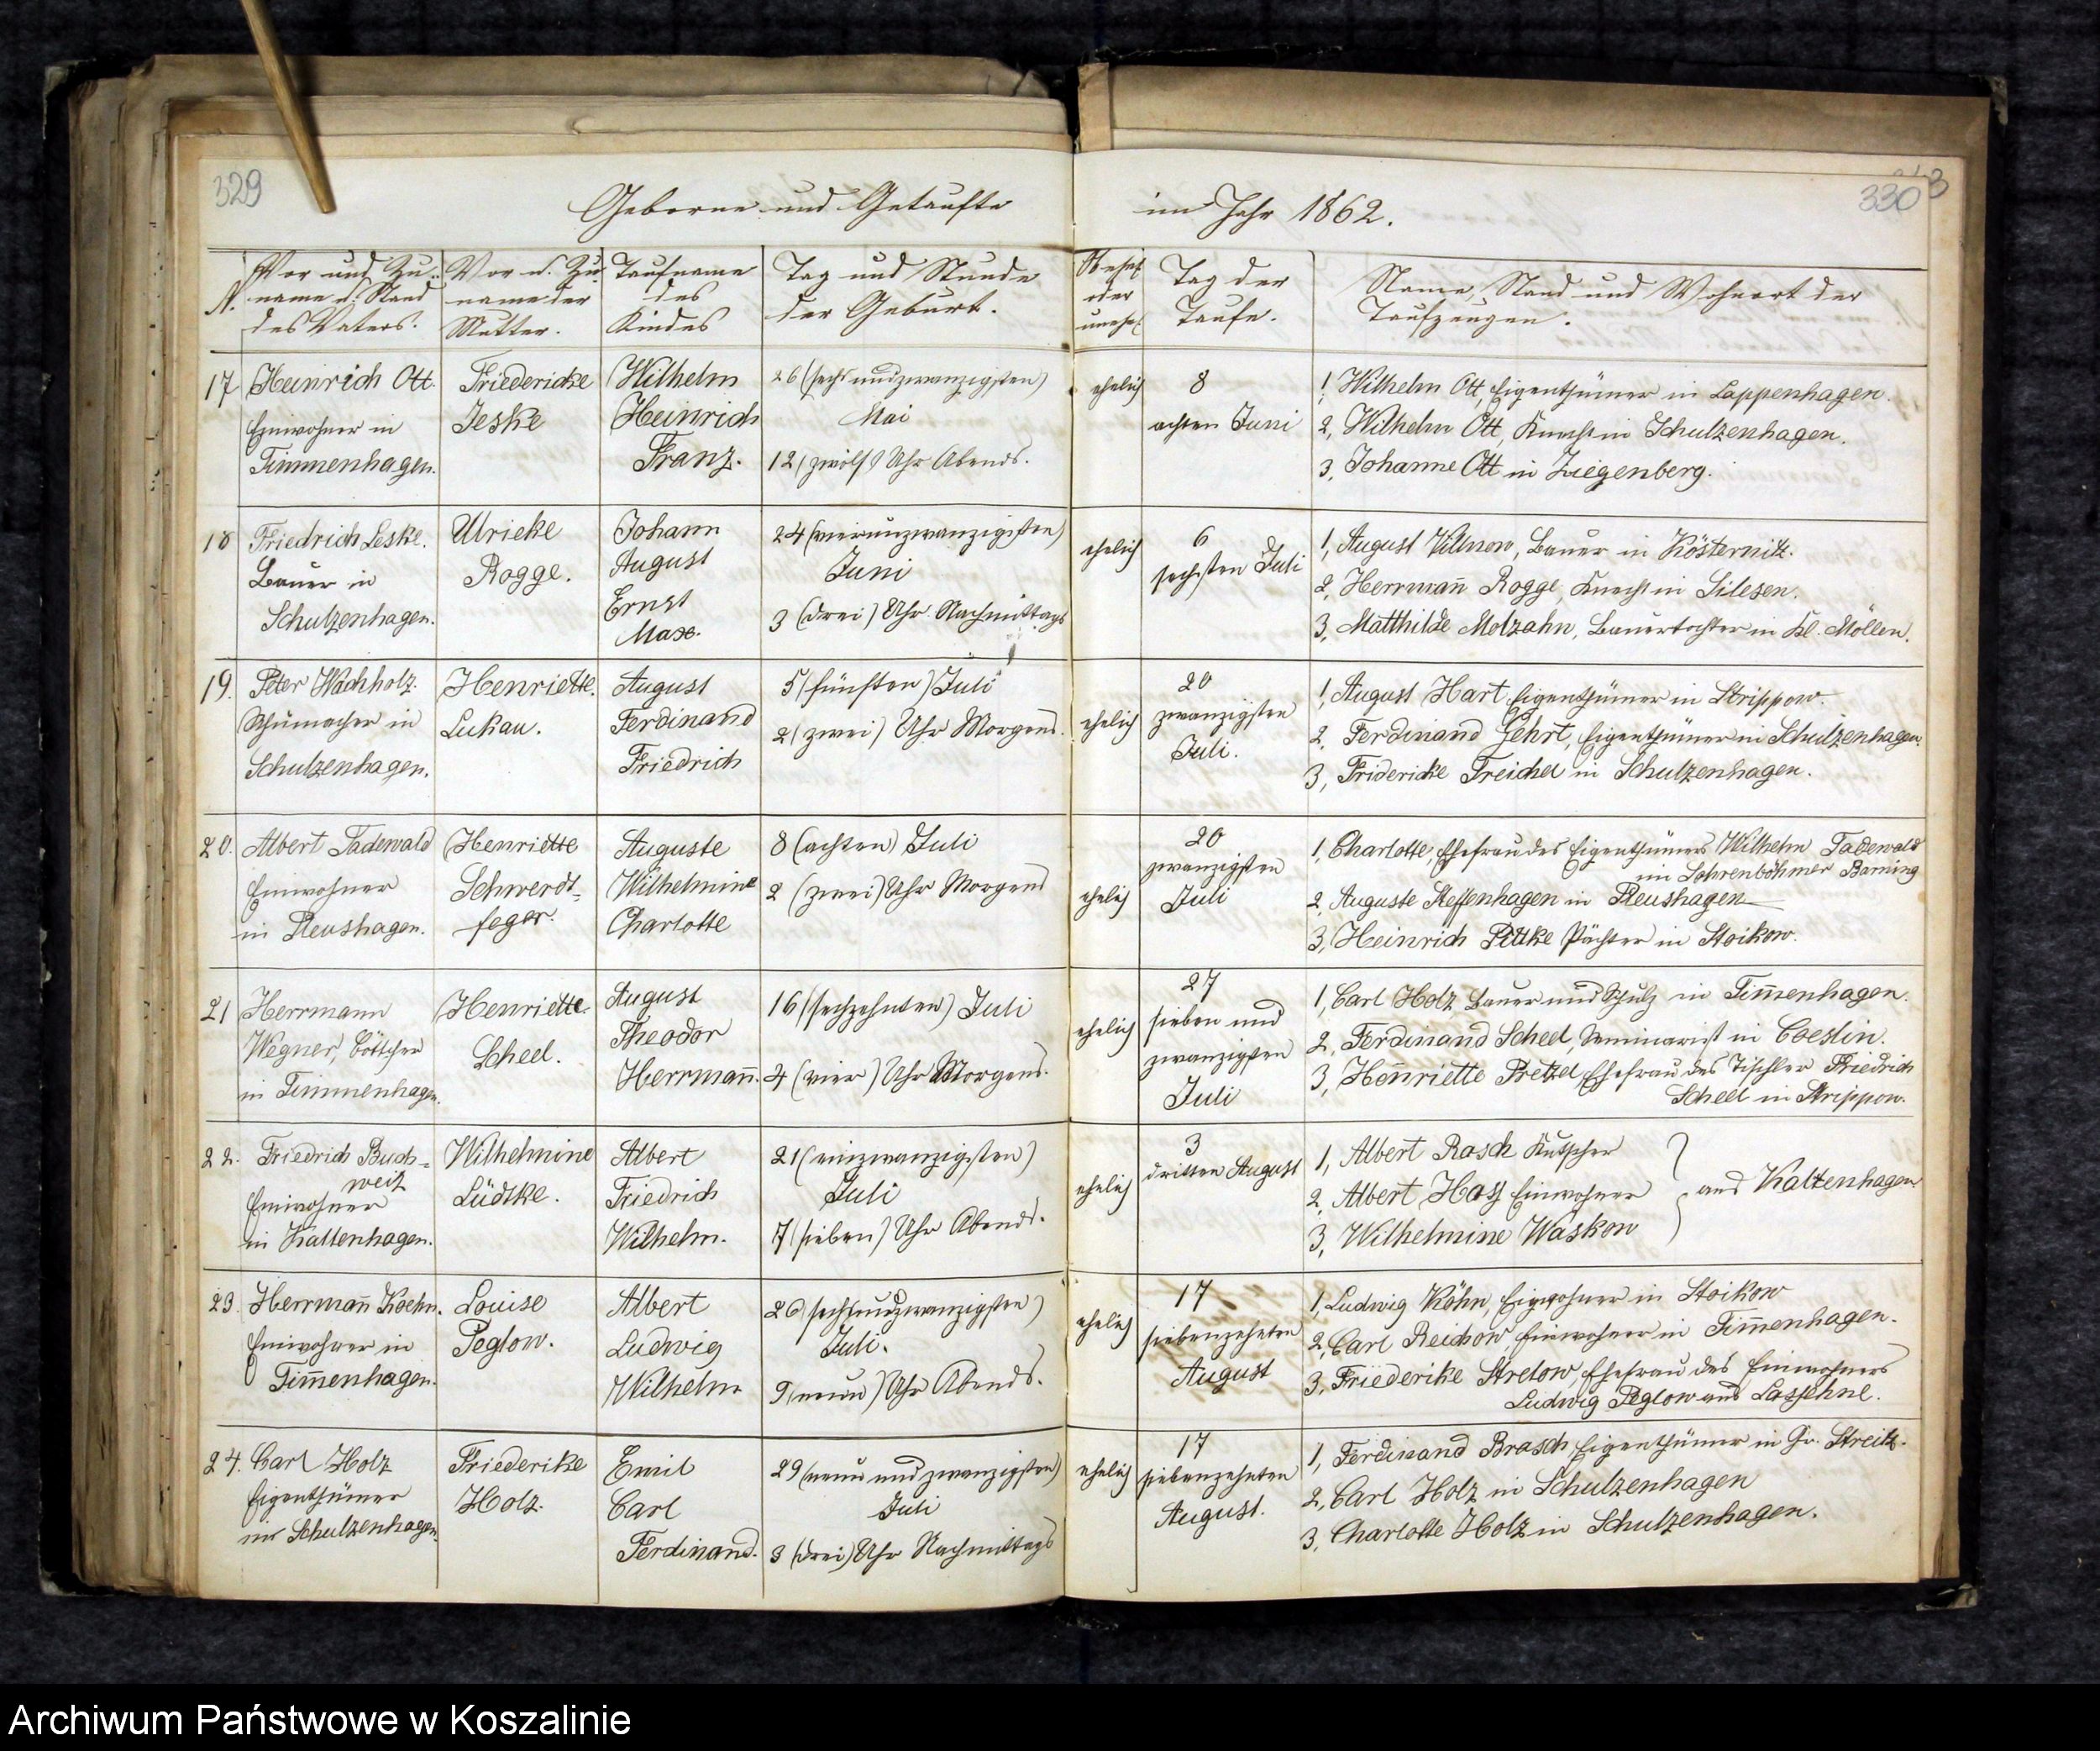 329
Geborne und Getaufte
im Jahr 1862.
330
3
N.
Vor und Zu-
name u. Stand
des Vaters.
Vor u. Zu-
name der
Mutter.
Taufname
des
Kindes
Tag und Stunde
der Geburt.
oder
Tag der
Taufe.
Name, Stand und Wohnort der
Taufzeugen.
17
Heinrich Ott.
Einwohner in
Timmenhagen.
Friedericke
Jeske
Wilhelm
Heinrich
Franz.
26 (sechsundzwanzigsten)
Mai
12 (zwölf) Uhr Abends.
ehelich
8
achten Juni
1, Wilhelm Ott, Eigenthümer in Lappenhagen.
2, Wilhelm Ott, Knecht in Schulzenhagen.
3, Johanne Ott in Ziegenberg.
18
Friedrich Leske.
Bauer in
Schulzenhagen.
Ulrieke
Rogge.
Johann
August
Ernst
Max.
24 (vierunzwanzigsten)
Juni
3 (drei) Uhr Nachmittags
ehelich
6
sechsten Juli
1, August Villnow, Bauer in Kösternitz.
2, Herrmann̄ Rogge, Knecht in Silesen.
3, Matthilde Molzahn, Bauertochter in Kl. Möllen.
19.
Peter Wachholz.
Schumacher in
Schulzenhagen.
Henriette.
Lukau.
August
Ferdinand
Friedrich
5 (fünften) Juli
2 (zwei) Uhr Morgens.
ehelich
20
zwanzigsten
Juli.
1, August Hart Eigenthümer in Strippow.
2, Ferdinand Gehrt, Eigenthümer in Schulzenhagen.
3, Fridericke Treichel in Schulzenhagen.
20.
Albert Tadewald
Einwohner
in Pleushagen.
Henriette
Schwerdt-
feger.
Auguste
Wilhelmine
Charlotte
8 (achten) Juli
2 (zwei) Uhr Morgens
ehelich
20
zwanzigsten
Juli
1, Charlotte, Ehefrau des Eigenthümers Wilhelm Tadewald
im Sohrenböhmer Barning
2, Auguste Steffenhagen in Pleushagen
3, Heinrich Pittke Pächter in Stoikow.
21
Herrmann
Wegner, Böttcher
in Timmenhagen.
Henriette.
Scheel.
August
Theodor
Herrmann̄.
16 (sechzehnten) Juli
4 (vier) Uhr Morgens.
ehelich
27
sieben und
zwanzigsten
Juli
1, Carl Holz Bauer und Schulz in Tim̄enhagen.
2, Ferdinand Scheel, Seminarist in Coeslin.
3, Hen̄riette Pretzel, Ehefrau des Tischler Friedrich
Scheel in Strippow.
22.
Friedrich Buch-
weitz
Einwohner
in Kaltenhagen.
Wilhelmine
Lüdtke.
Albert
Friedrich
Wilhelm.
21 (einzwanzigsten)
Juli
7 (sieben) Uhr Abends.
ehelich
3
dritten August
1, Albert Rasch Kutscher
2, Albert Hass Einwohner
3, Wilhelmine Waskow
aus Kaltenhagen.
23.
Herrman̄ Koehn.
Einwohner in
Tim̄enhagen.
Louise
Peglow.
Albert
Ludwig
Wilhelm
26 (sechsundzwanzigsten)
Juli.
9 (neun) Uhr Abends.
ehelich
17
siebenzehnten
August
1, Ludwig Köhn, Einwohner in Stoikow
2, Carl Reichow, Einwohner in Tim̄enhagen.
3, Friederike Stretow, Ehefrau des Einwohners
Ludwig Peglow aus Lassehne.
24.
Carl Holz
Eigenthümer
in Schulzenhagen.
Friederike
Holz.
Emil
Carl
Ferdinand.
29 (neun und zwanzigsten)
Juli
3 (drei) Uhr Nachmittags
ehelich
17
siebenzehnten
August.
1, Ferdinand Brasch, Eigenthümer in Gr. Streitz.
2, Carl Holz in Schulzenhagen
3, Charlotte Holz in Schulzenhagen.
Archiwum Państwowe w Koszalinie